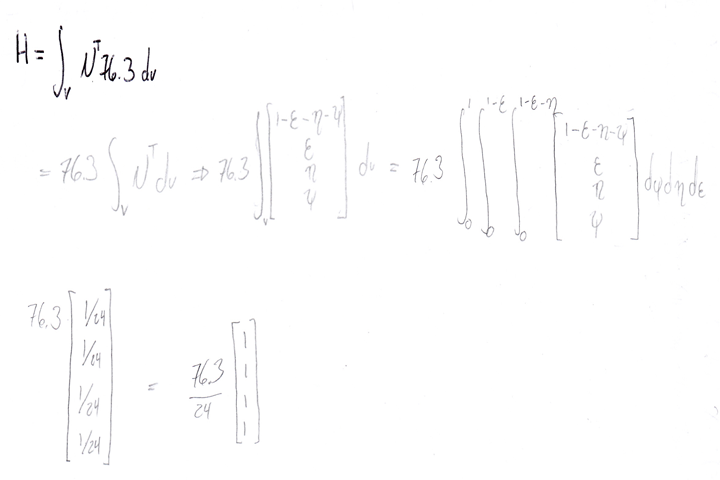 H = ∫_V N^T 76.3 dv
= 76.3 ∫_V N^T dv ⇒ 76.3 ∫_V [1-ε-η-ψ ; ε ; η ; ψ] dv = 76.3 ∫_0^1 ∫_0^{1-ε} ∫_0^{1-ε-η} [1-ε-η-ψ ; ε ; η ; ψ] dψ dη dε
76.3 [1/24 ; 1/24 ; 1/24 ; 1/24] = 76.3/24 [1 ; 1 ; 1 ; 1]